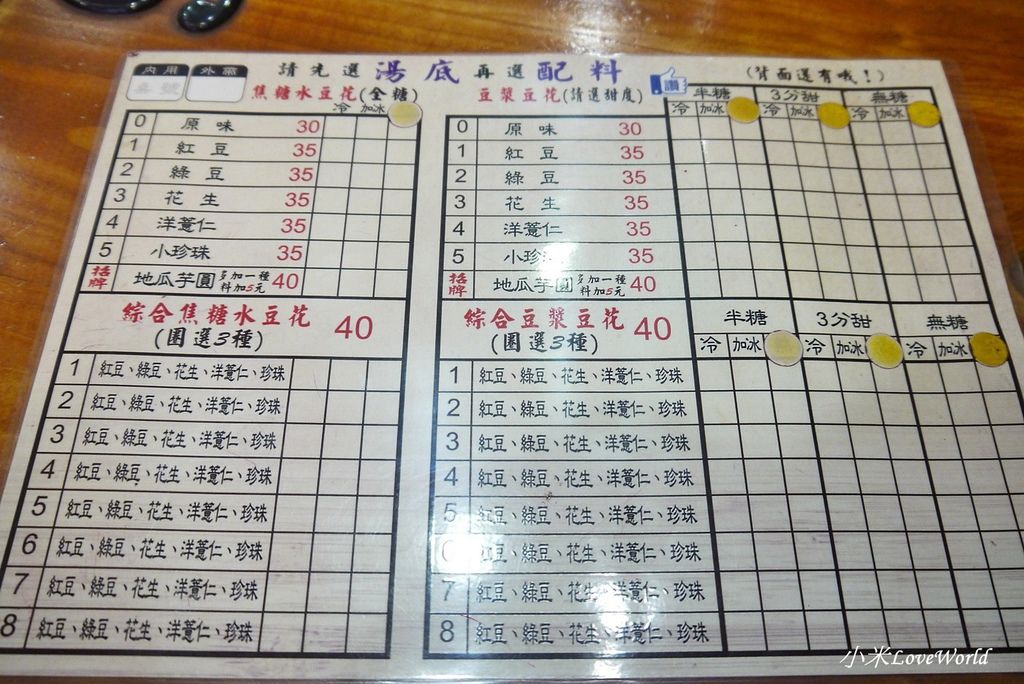 內用 外帶
桌號
請先選 湯底 再選 配料
(背面還有哦!)
焦糖水豆花(全糖)
冷 加冰
0 原味 30
1 紅豆 35
2 綠豆 35
3 花生 35
4 洋薏仁 35
5 小珍珠 35
招牌 地瓜芋圓 多加一種料加5元 40
綜合焦糖水豆花 40
(圈選3種)
1 紅豆、綠豆、花生、洋薏仁、珍珠
2 紅豆、綠豆、花生、洋薏仁、珍珠
3 紅豆、綠豆、花生、洋薏仁、珍珠
4 紅豆、綠豆、花生、洋薏仁、珍珠
5 紅豆、綠豆、花生、洋薏仁、珍珠
6 紅豆、綠豆、花生、洋薏仁、珍珠
7 紅豆、綠豆、花生、洋薏仁、珍珠
8 紅豆、綠豆、花生、洋薏仁、珍珠
豆漿豆花(請選甜度) 讚
半糖 3分甜 無糖
冷 加冰 冷 加冰 冷 加冰
0 原味 30
1 紅豆 35
2 綠豆 35
3 花生 35
4 洋薏仁 35
5 小珍珠 35
招牌 地瓜芋圓 多加一種料加5元 40
綜合豆漿豆花 40
(圈選3種)
半糖 3分甜 無糖
冷 加冰 冷 加冰 冷 加冰
1 紅豆、綠豆、花生、洋薏仁、珍珠
2 紅豆、綠豆、花生、洋薏仁、珍珠
3 紅豆、綠豆、花生、洋薏仁、珍珠
4 紅豆、綠豆、花生、洋薏仁、珍珠
5 紅豆、綠豆、花生、洋薏仁、珍珠
6 紅豆、綠豆、花生、洋薏仁、珍珠
7 紅豆、綠豆、花生、洋薏仁、珍珠
8 紅豆、綠豆、花生、洋薏仁、珍珠
小米LoveWorld